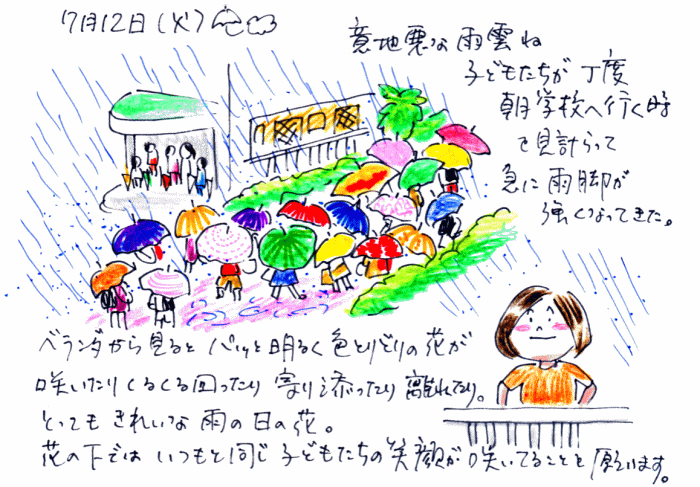 7月12日(火)
意地悪な雨雲ね
子どもたちが丁度
朝学校へ行く時
を見計らって
急に雨脚が
強くなってきた。
ベランダから見ると パッと明るく色とりどりの花が
咲いたりくるくる回ったり 寄り添ったり 離れたり。
とってもきれいな雨の日の花。
花の下では いつもと同じ 子どもたちの笑顔が咲いてることを願います。